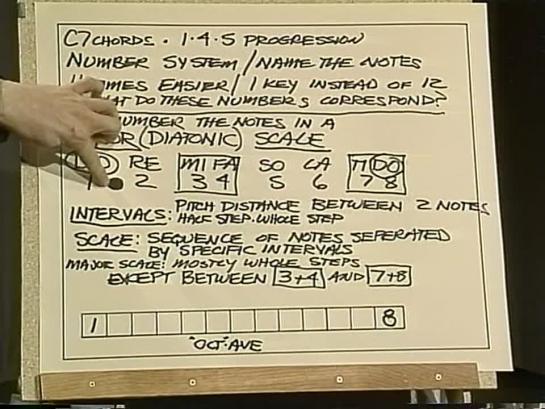 C7CHORDS · 1·4·5 PROGRESSION
NUMBER SYSTEM / NAME THE NOTES
EASIER / 1 KEY INSTEAD OF 12
DO THESE NUMBERS CORRESPOND?
NUMBER THE NOTES IN A
(DIATONIC) SCALE
RE MI FA SO LA TI DO
1 2 3 4 5 6 7 8
INTERVALS: PITCH DISTANCE BETWEEN 2 NOTES
HALF STEP. WHOLE STEP
SCALE: SEQUENCE OF NOTES SEPERATED
BY SPECIFIC INTERVALS
MAJOR SCALE: MOSTLY WHOLE STEPS
EXCEPT BETWEEN 3+4 AND 7+8
1 8
"OCT·AVE